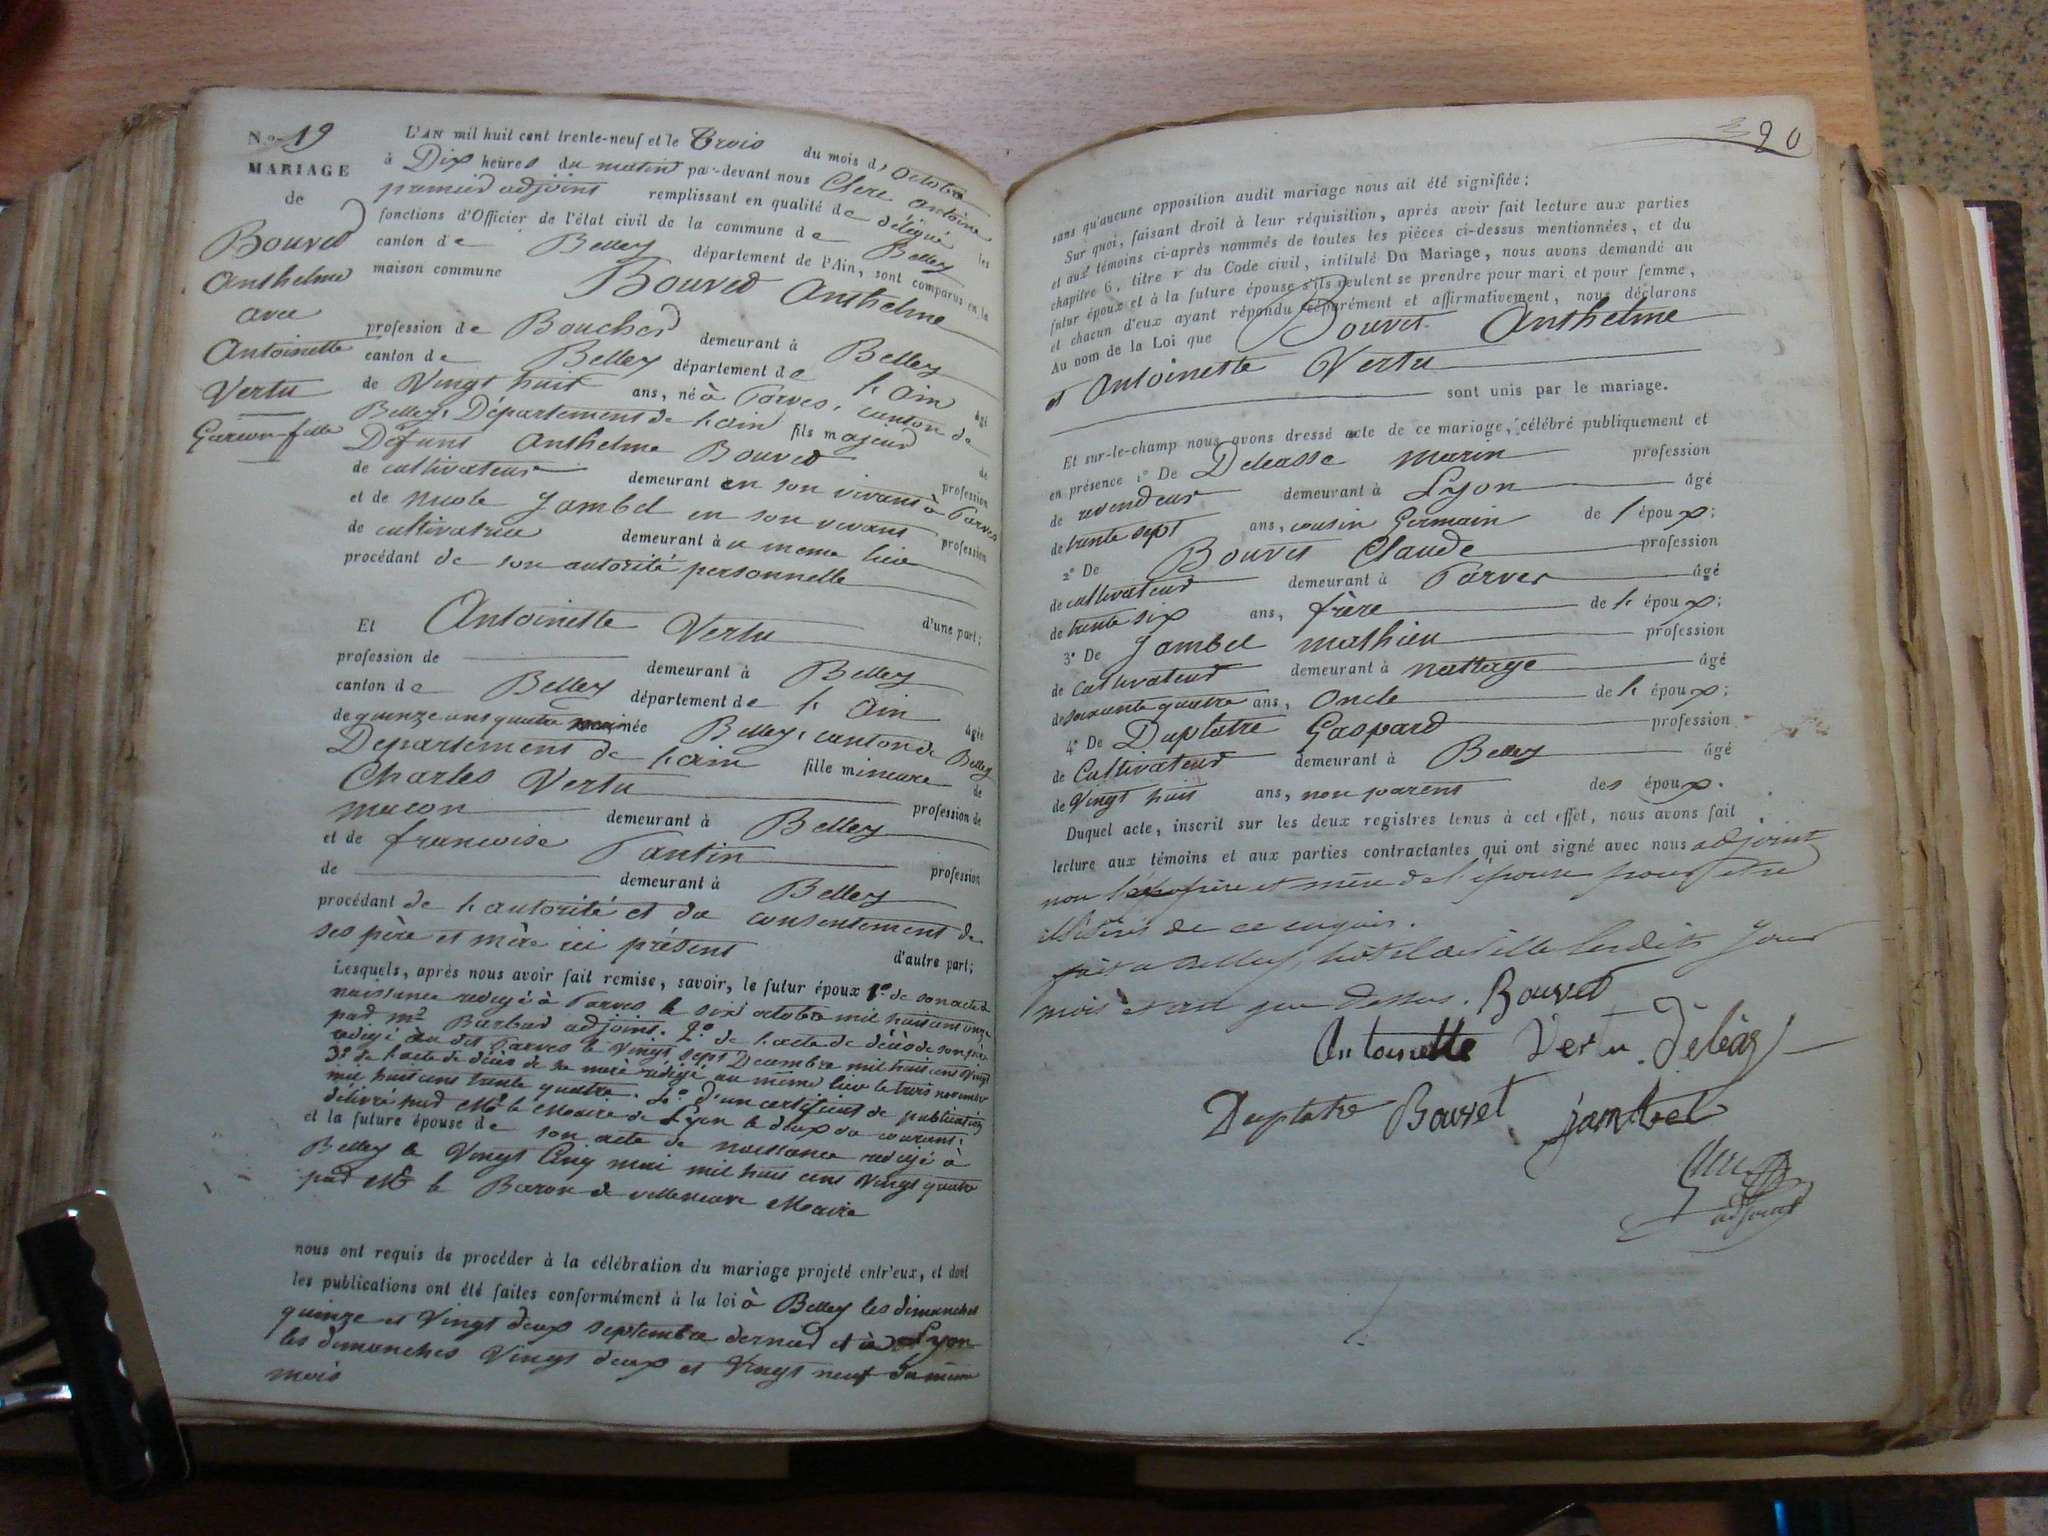 No 19
MARIAGE
de
Bouvet
Anthelme
avec
Antoinette
Vertu
Garçon fille
L'AN mil huit cent trente-neuf et le Trois du mois d'Octobre
à Dix heures du matin par-devant nous Clerc Antoine
premier adjoint remplissant en qualité de délégué les
fonctions d'Officier de l'état civil de la commune de Belley
canton de Belley département de l'Ain, sont comparus en la
maison commune Bouvet Anthelme
profession de Boucher demeurant à Belley
canton de Belley département de l'ain âgé
de Vingt huit ans, né à Parves, canton de
Belley, Département de l'ain fils majeur de
Défunt Anthelme Bouvet profession
de cultivateur demeurant en son vivant à Parves
et de Nicole Jambel en son vivant profession
de cultivatrice demeurant à u meme lieu
procédant de son autorité personnelle
d'une part;
Et Antoinette Vertu
profession de demeurant à Belley
canton de Belley département de l'Ain âgée
de quinze ans quatre mois née Belley, canton de Belley
Département de l'ain fille mineure de
Charles Vertu profession de
macon demeurant à Belley
et de francoise Pantin profession
de demeurant à Belley
procédant de l'autorité et du consentement de
ses père et mère ici présent d'autre part;
Lesquels, après nous avoir fait remise, savoir, le futur époux 1o de son acte de
naissance redigé à Parves le six octobre mil huit cent onze
par mr Barbar adjoint. 2o de l'acte de décès de son père
redigé au dit Parves le vingt sept Decembre mil huit cent vingt
3o de l'acte de décès de sa mere rédigé au même lieu le trois novembre
mil huit cent trente quatre. 4o d'un certificat de publication
délivré par Mr le Maire de Lyon le deux du courant.
et la future épouse de son acte de naissance redigé à
Belley le Vingt Cinq mai mil huit cent vingt quatre
par Mr le Baron de villeneuve Maire
nous ont requis de procéder à la célébration du mariage projeté entr'eux, et dont
les publications ont été faites conformément à la loi à Belley les dimanches
quinze et Vingt deux septembre dernier et à Lyon
les dimanches Vingt deux et Vingt neuf du même
mois
20
sans qu'aucune opposition audit mariage nous ait été signifiée;
Sur quoi, faisant droit à leur réquisition, après avoir fait lecture aux parties
et aux témoins ci-après nommés de toutes les pièces ci-dessus mentionnées, et du
chapitre 6, titre v du Code civil, intitulé Du Mariage, nous avons demandé au
futur époux et à la future épouse s'ils veulent se prendre pour mari et pour femme,
et chacun d'eux ayant répondu séparément et affirmativement, nous déclarons
Au nom de la Loi que Bouvet Anthelme
et Antoinette Vertu
sont unis par le mariage.
Et sur-le-champ nous avons dressé acte de ce mariage, célébré publiquement et
en présence 1o De Deleasse marin profession
de revendeur demeurant à Lyon âgé
de trente sept ans, cousin Germain de l'époux;
2o De Bouvet Claude profession
de cultivateur demeurant à Parves âgé
de trente six ans, frère de l'époux;
3o De Jambel mathieu profession
de Cultivateur demeurant à nattage âgé
de soixante quatre ans, Oncle de l'époux;
4o De Duplatre Gaspard profession
de Cultivateur demeurant à Belley âgé
de Vingt huit ans, non parent des époux.
Duquel acte, inscrit sur les deux registres tenus à cet effet, nous avons fait
lecture aux témoins et aux parties contractantes qui ont signé avec nous adjoint
non père et mère de l'épouse pour etre
illitérés de ce enquis.
fait à Belley, hotel de ville lesdits Jour
mois et an que dessus. Bouvet
Antoinette Vertu. Deléaz
Duplatre Bouvet jambel
Clerc
adjoint